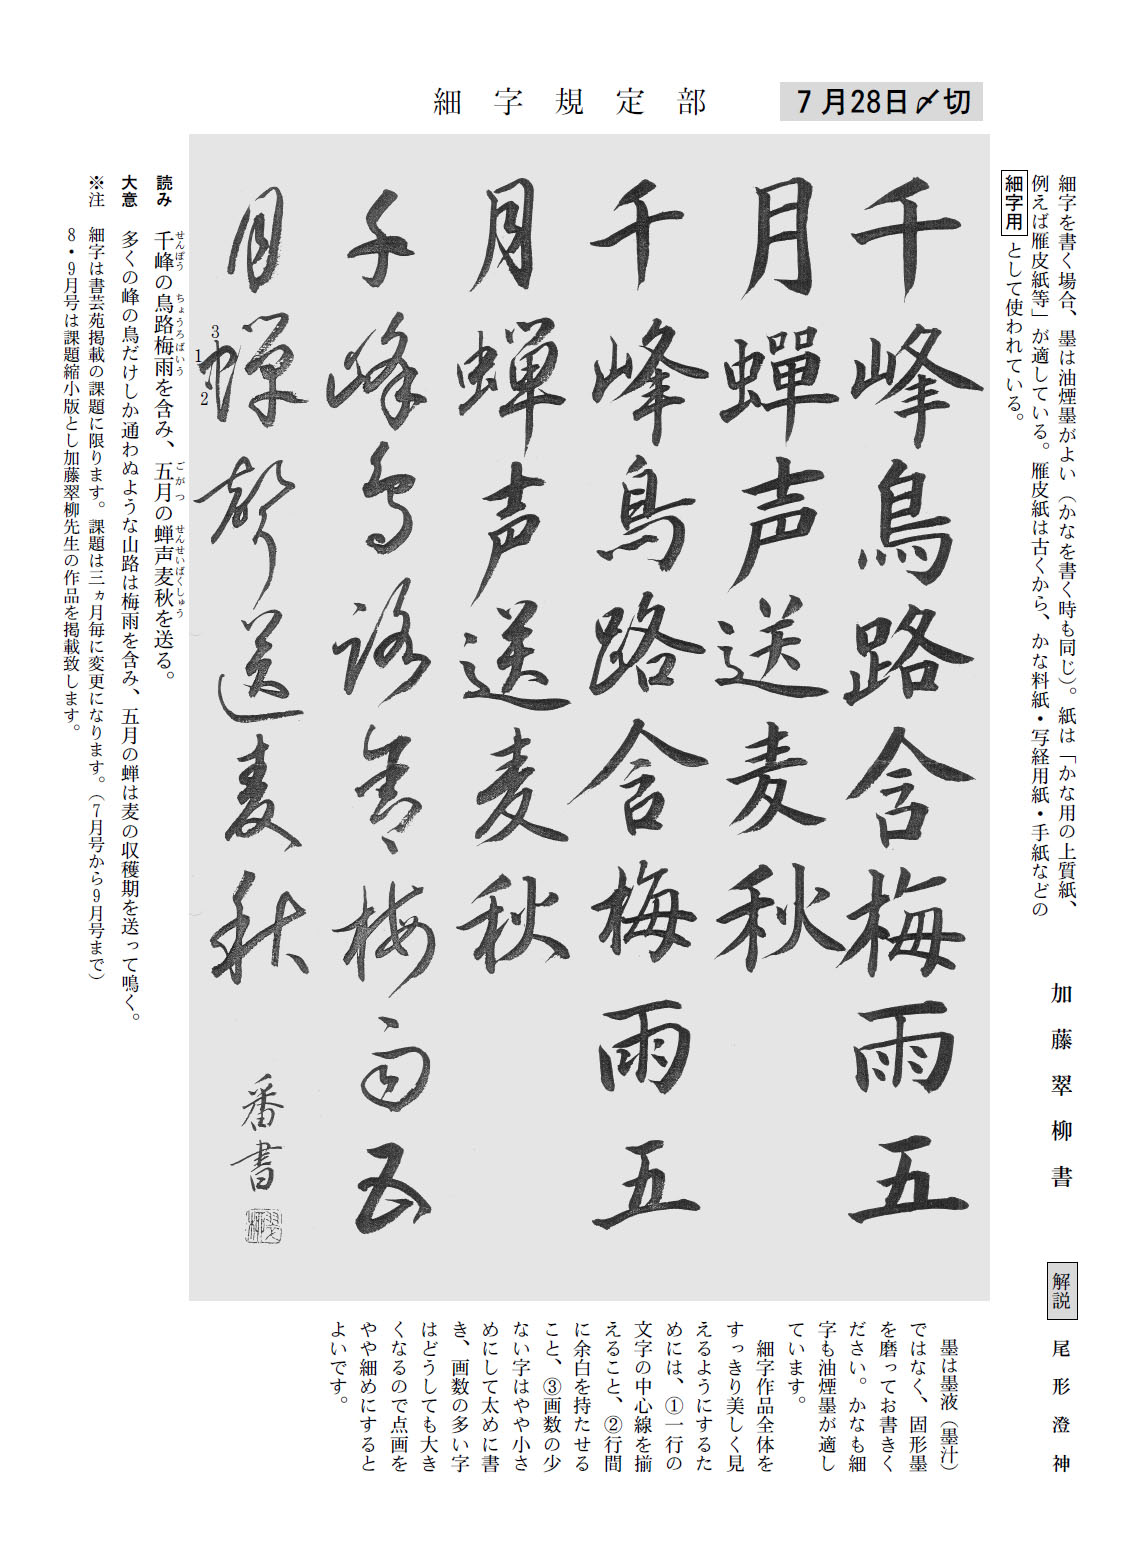 細字規定部
7月28日〆切
細字を書く場合、墨は油煙墨がよい（かなを書く時も同じ）。紙は「かな用の上質紙、
例えば雁皮紙等」が適している。雁皮紙は古くから、かな料紙・写経用紙・手紙などの
細字用として使われている。
加藤翠柳書
千峰鳥路含梅雨五
月蟬声送麦秋
千峰鳥路含梅雨五
月蝉声送麦秋
千峰鳥路含梅雨五
月蝉聲送麦秋
1
2
3
番書
読み 千峰の鳥路梅雨を含み、五月の蝉声麦秋を送る。
せんぽう ちょうろばいう ごがつ せんせいばくしゅう
大意 多くの峰の鳥だけしか通わぬような山路は梅雨を含み、五月の蝉は麦の収穫期を送って鳴く。
※注 細字は書芸苑掲載の課題に限ります。課題は三ヵ月毎に変更になります。（7月号から9月号まで）
8・9月号は課題縮小版とし加藤翠柳先生の作品を掲載致します。
解説 尾形澄神
墨は墨液（墨汁）
ではなく、固形墨
を磨ってお書きく
ださい。かなも細
字も油煙墨が適し
ています。
細字作品全体を
すっきり美しく見
えるようにするた
めには、①一行の
文字の中心線を揃
えること、②行間
に余白を持たせる
こと、③画数の少
ない字はやや小さ
めにして太めに書
き、画数の多い字
はどうしても大き
くなるので点画を
やや細めにすると
よいです。